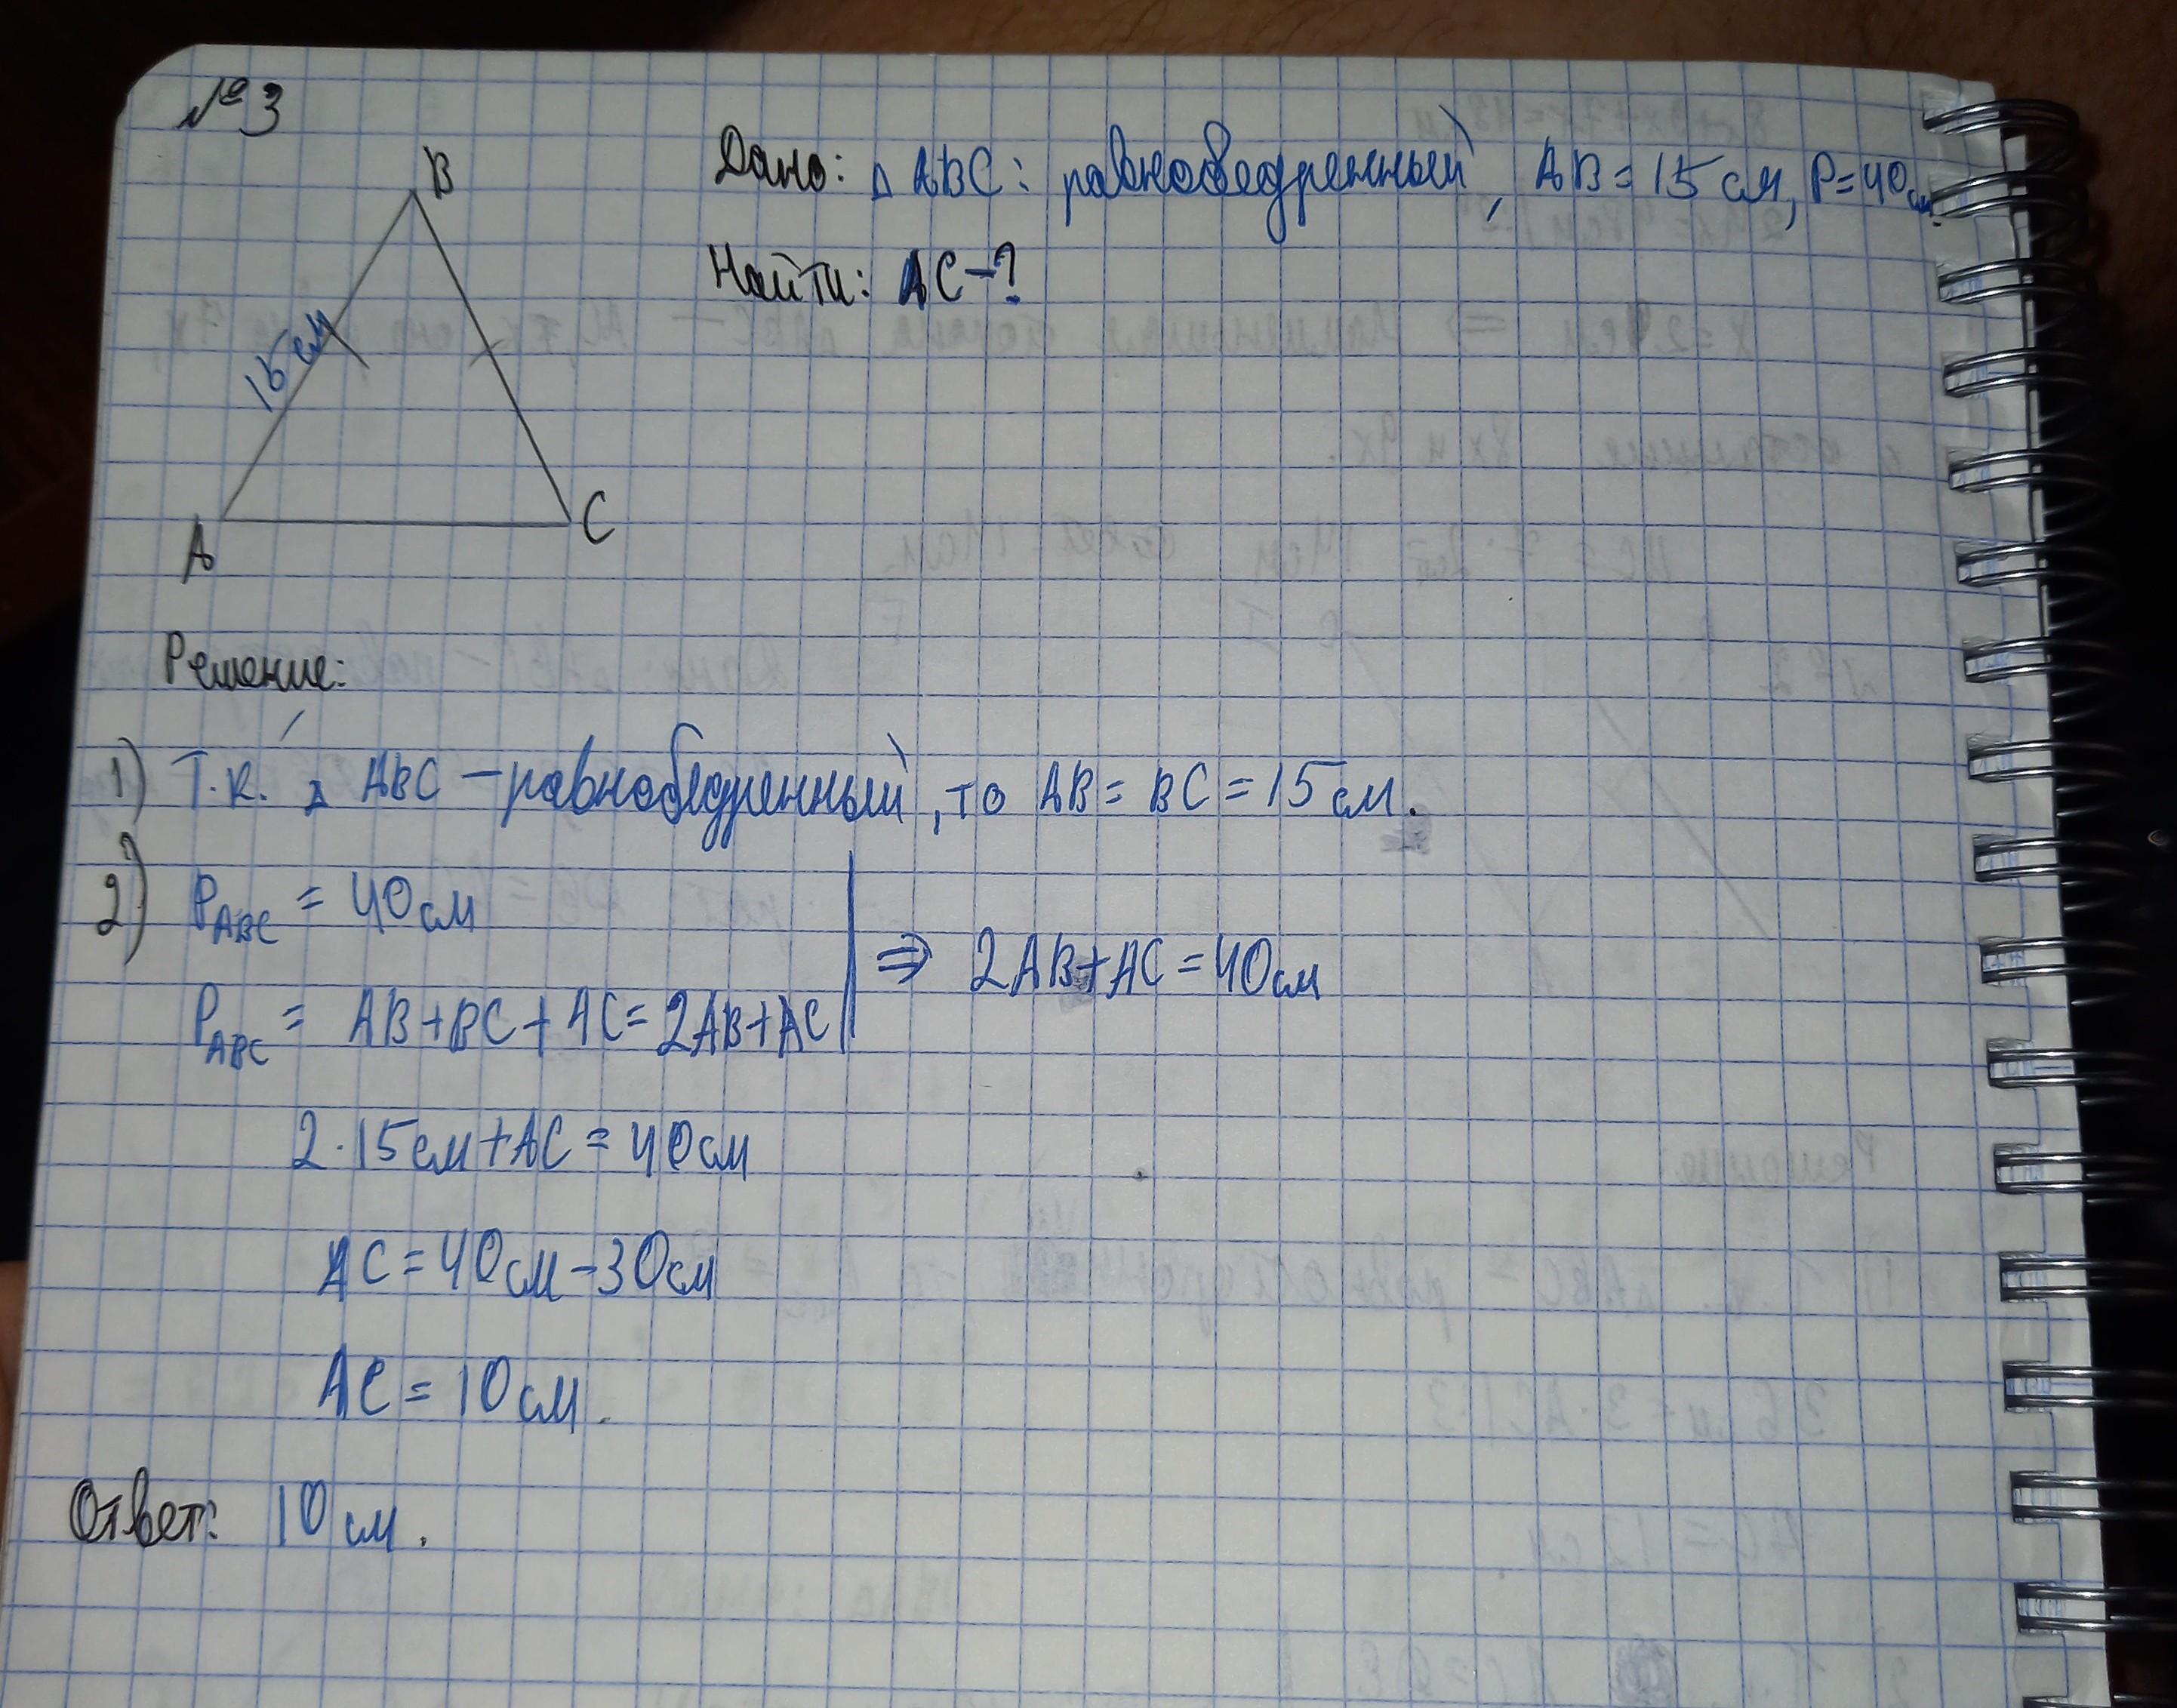 №3
B
Дано: △ ABC: равнобедренный, AB = 15 см, P = 40 см.
Найти: AC - ?
15 см
A
C
Решение:
1) Т.к. △ ABC – равнобедренный, то AB = BC = 15 см.
2) P_ABC = 40 см
⇒ 2AB + AC = 40 см
P_ABC = AB + BC + AC = 2AB + AC
2 · 15 см + AC = 40 см
AC = 40 см - 30 см
AC = 10 см.
Ответ: 10 см.